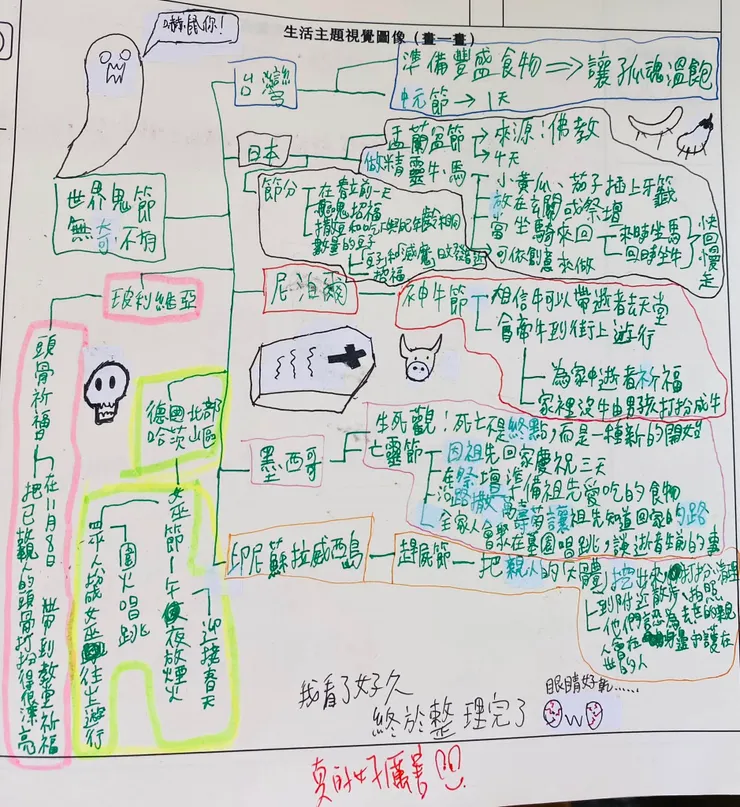 生活主題視覺圖像（畫一畫）
嚇鼠你！
世界鬼節
無奇不有
台灣
準備豐盛食物⇒讓孤魂溫飽
中元節→1天
日本
盂蘭盆節
來源：佛教
4天
做精靈牛、馬
小黃瓜、茄子插上牙籤
放在玄關或祭壇
當坐騎來回
來時坐馬
回時坐牛
快回慢走
可做創意來做
節分
在春立前一天
驅鬼招福
撒豆和吃與配年齡相同
數量的豆子
招福
尼泊爾
神牛節
相信牛可以帶逝者去天堂
會帶牛到街上遊行
為家中逝者祈福
家裡沒牛由男孩打扮成牛
玻利維亞
頭骨祈福
在11月8日
把已故親人的頭骨打扮得很漂亮
帶到教堂祈福
德國北部
哈茨山區
女巫節
午夜放煙火
迎接春天
圍火唱跳
眾人扮女巫街上遊行
墨西哥
生死觀：死亡不是終點，而是一種新的開始
亡靈節
因祖先回家慶祝三天
在祭壇準備祖先愛吃的食物
沿路撒萬壽菊讓祖先知道回家的路
全家人會聚在墓園唱跳，談逝者生前的事
印尼蘇拉威西島
趕屍節
把親人的大體挖出來打扮清理
到附近散步、拍照
他們認為去世的親
人會在身邊守護在
世的人
我看了好久
終於整理完了
眼睛好乾……
真的好厲害